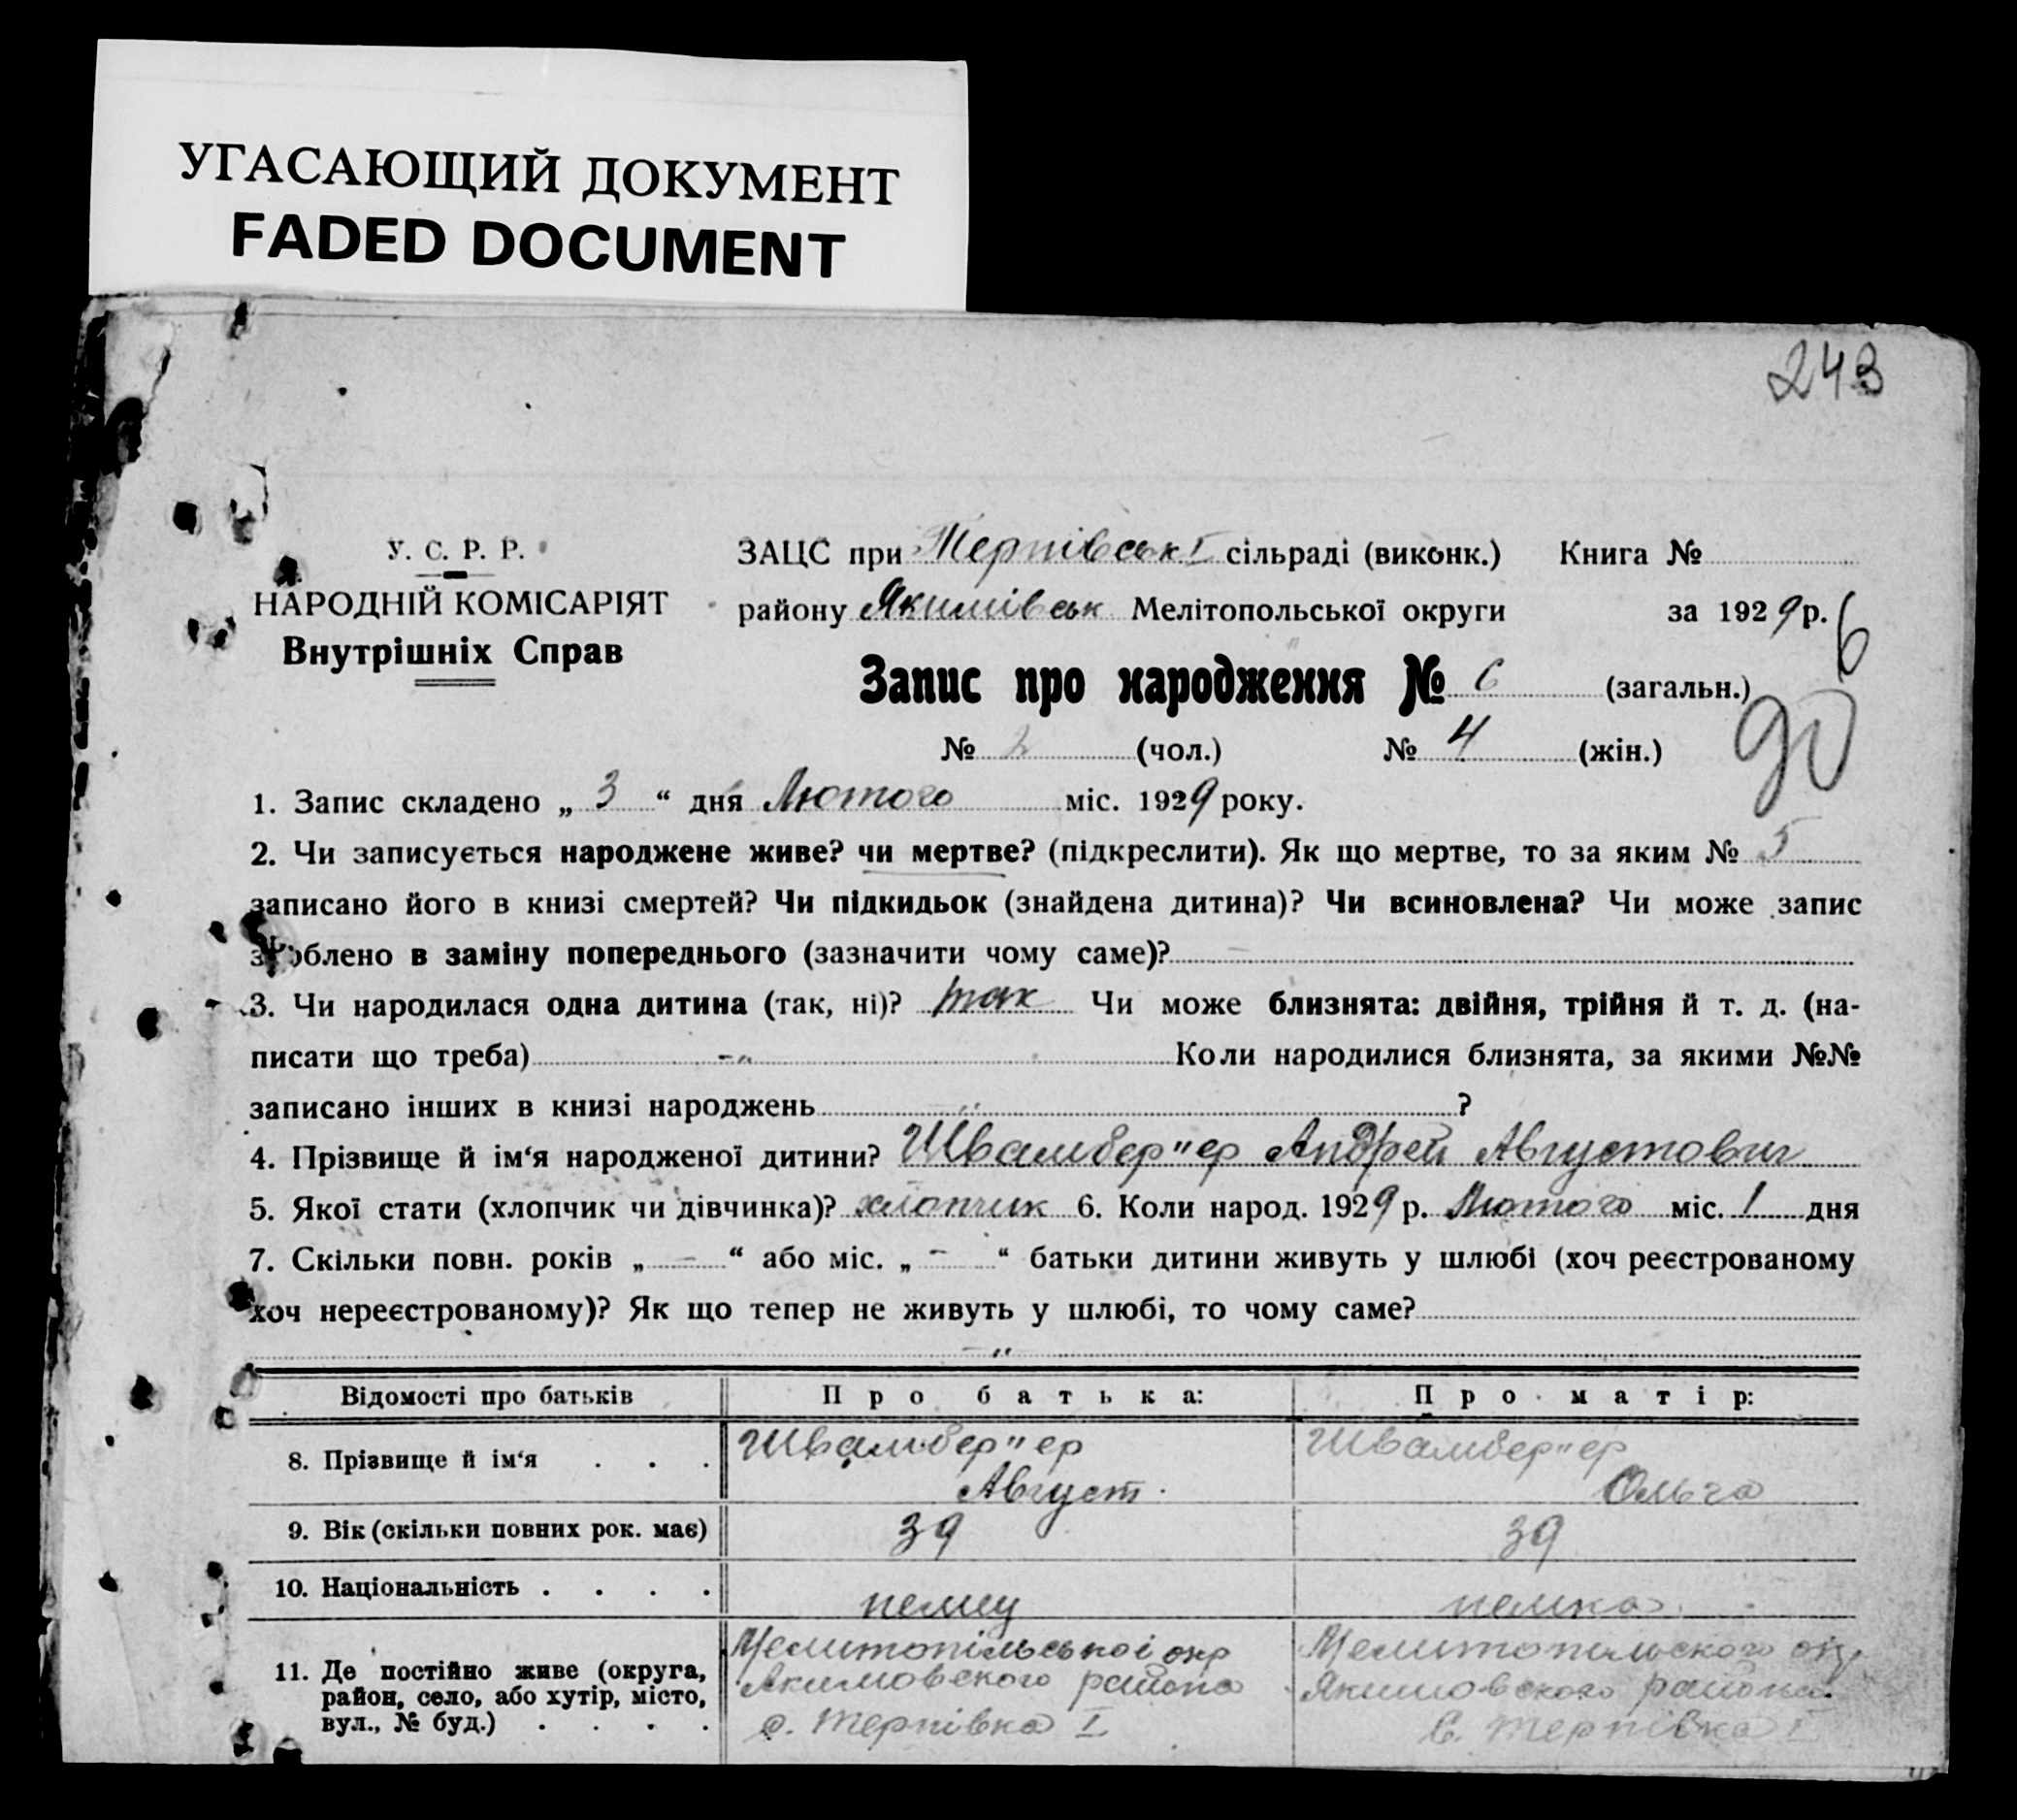 УГАСАЮЩИЙ ДОКУМЕНТ
FADED DOCUMENT
243
У. С. Р. Р.
НАРОДНІЙ КОМІСАРІЯТ
Внутрішніх Справ
ЗАЦС при Терпівськ І сільраді (виконк.) Книга №
району Якимівськ Мелітопольської округи за 1929 р.
6
Запис про народження № 6 (загальн.)
90
№ 2 (чол.) № 4 (жін.)
1. Запис складено „ 3 “ дня Лютого міс. 1929 року.
2. Чи записується народжене живе? чи мертве? (підкреслити). Як що мертве, то за яким № 5
записано його в книзі смертей? Чи підкидьок (знайдена дитина)? Чи всиновлена? Чи може запис
зроблено в заміну попереднього (зазначити чому саме)? —
3. Чи народилася одна дитина (так, ні)? так Чи може близнята: двійня, трійня й т. д. (на-
писати що треба) -„ Коли народилися близнята, за якими №№
записано інших в книзі народжень „ ?
4. Прізвище й ім‘я народженої дитини? Швамбер"ер Андрей Августович
5. Якої стати (хлопчик чи дівчинка)? хлопчик 6. Коли народ. 1929 р. Лютого міс. 1 дня
7. Скільки повн. років „ - “ або міс. „ - “ батьки дитини живуть у шлюбі (хоч реєстрованому
хоч нереєстрованому)? Як що тепер не живуть у шлюбі, то чому саме?
-„
Відомості про батьків Про батька: Про матір:
8. Прізвище й ім‘я . . . Швамбер"ер Август. Швамбер"ер Ольга
9. Вік (скільки повних рок. має) 39 39
10. Національність . . . . немец немка
11. Де постійно живе (округа, район, село, або хутір, місто, вул., № буд.) . . . . Мелитопільської окр Акимовского района с. Терпівка І Мелитопильского окр Якимовского района с. Терпівка І